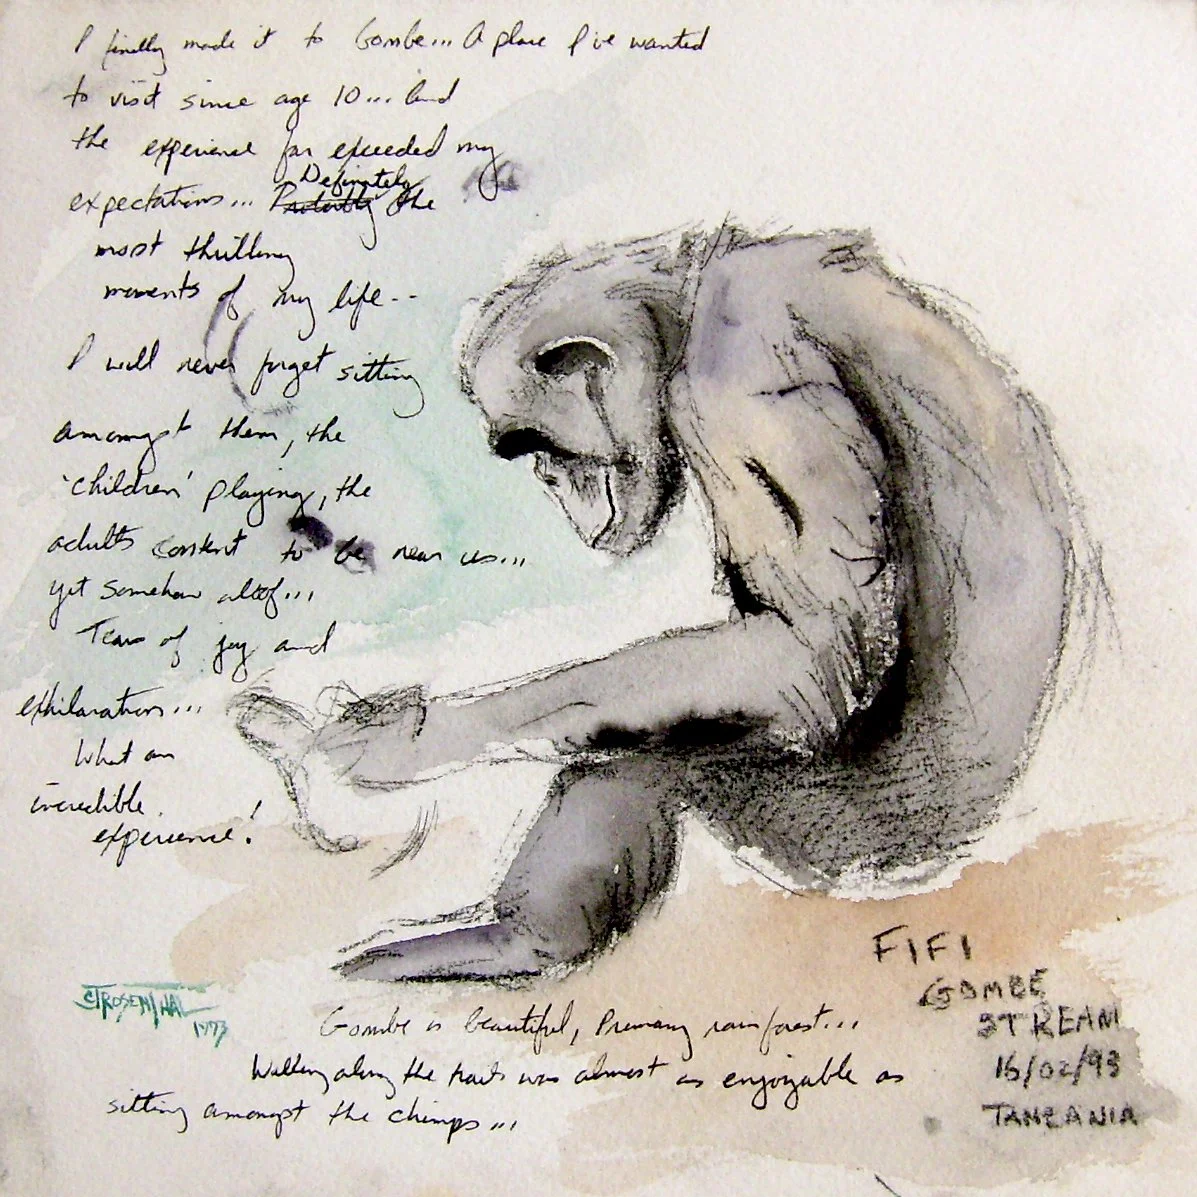 I finally made it to Gombe... A place I've wanted
to visit since age 10... And
the experience far exceeded my
expectations... Definitely the
most thrilling
moments of my life--
I will never forget sitting
amongst them, the
'children' playing, the
adults content to be near us...
yet somehow aloof...
Tears of joy and
exhilaration...
What an
incredible
experience!
FIFI
GOMBE
STREAM
16/02/93
TANZANIA
ROSENTHAL
1993
Gombe is beautiful, Primary rainforest...
Walking along the trails was almost as enjoyable as
sitting amongst the chimps...